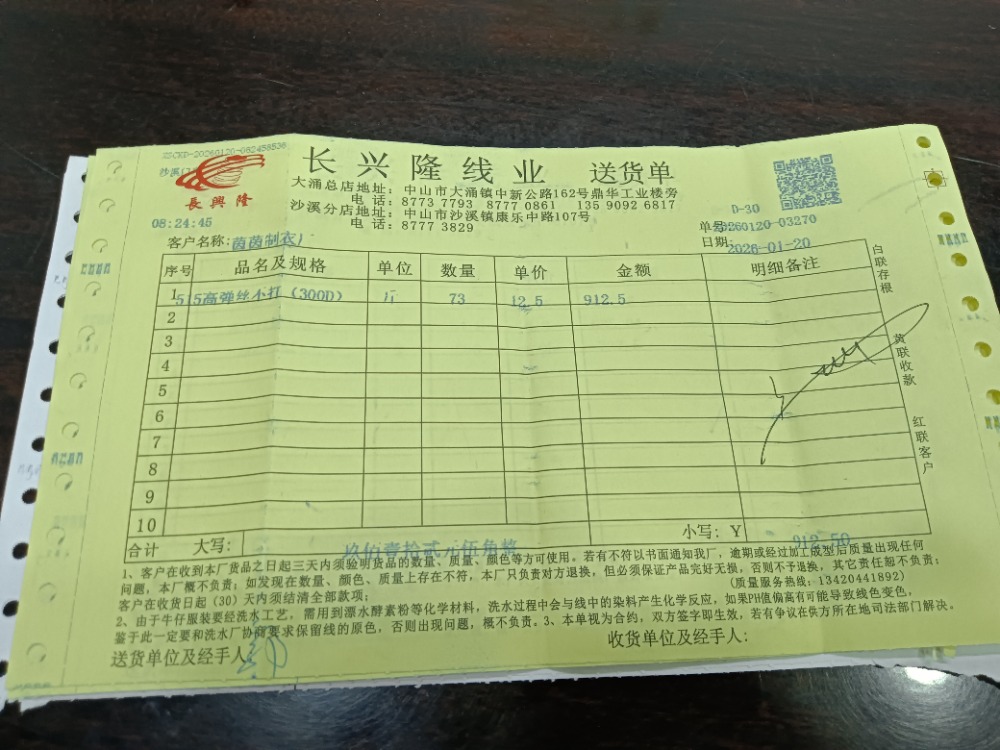 长兴隆线业 送货单
長興隆
大涌总店地址：中山市大涌镇中新公路162号鼎华工业楼旁
电 话：8773 7793 8777 0861 135 9092 6817
沙溪分店地址：中山市沙溪镇康乐中路107号
电 话：8777 3829
08:24:45
D-30
单号 260120-03270
客户名称：茵茵制衣厂
日期：2026-01-20
序号 品名及规格 单位 数量 单价 金额 明细备注
1 515高弹丝小打（300D） 73 12.5 912.5
2
3
4
5
6
7
8
9
10
合计 大写：玖佰壹拾贰元伍角整 小写：Y 912.50
白联存根
黄联收款
红联客户
1、客户在收到本厂货品之日起三天内须验明货品的数量、质量、颜色等方可使用。若有不符以书面通知我厂，逾期或经过加工成型后质量出现任何
问题，本厂概不负责；如发现在数量、颜色、质量上存在不符，本厂只负责对方退换，但必须保证产品完好无损，否则不予退换，其它责任恕不负责；
客户在收货日起（30）天内须结清全部款项；
（质量服务热线：13420441892）
2、由于牛仔服装要经洗水工艺，需用到漂水酵素粉等化学材料，洗水过程中会与线中的染料产生化学反应，如果PH值偏高有可能导致线色变色，
鉴于此一定要和洗水厂协商要求保留线的原色，否则出现问题，概不负责。3、本单视为合约，双方签字即生效，若有争议在供方所在地司法部门解决。
送货单位及经手人：
收货单位及经手人：